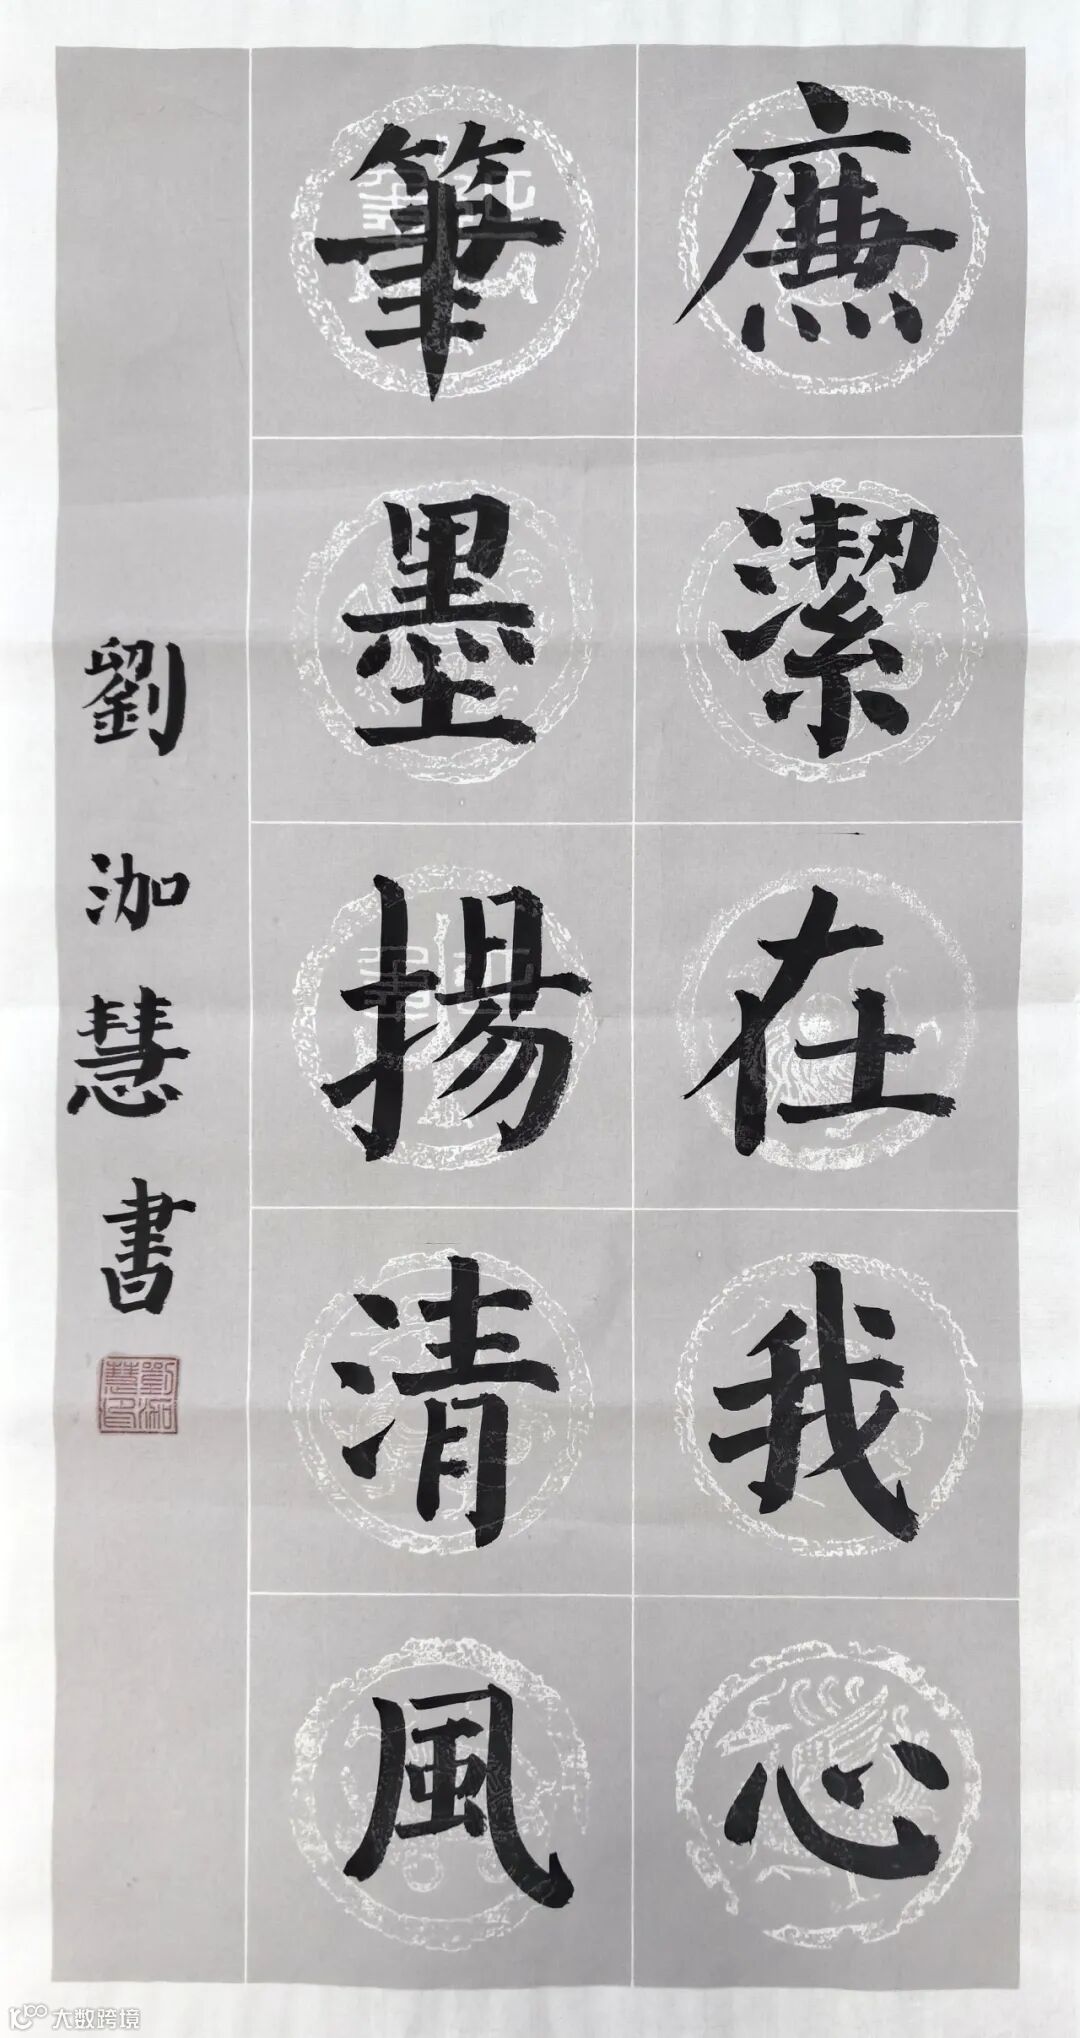 廉潔在我心
筆墨揚清風
劉泇慧書
劉泇慧印
大数跨境